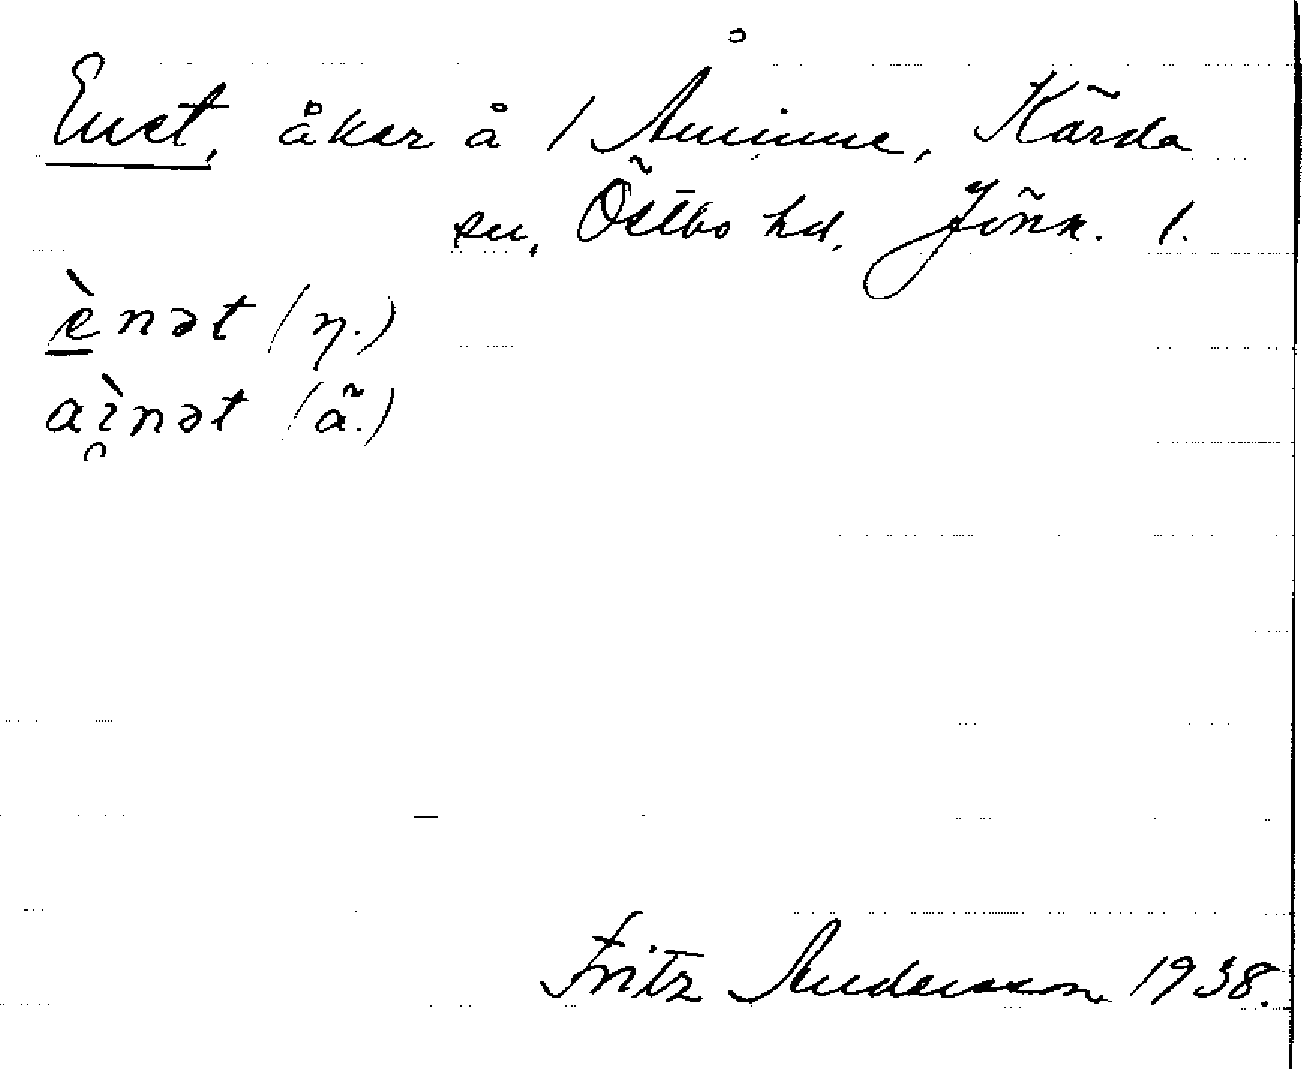 Enet, åker å 1 Åminne, Kärda
sn, Östbo hd, Jönk. l.
ènət (y.)
aì̯nət (ä.)
Fritz Andersson 1938.